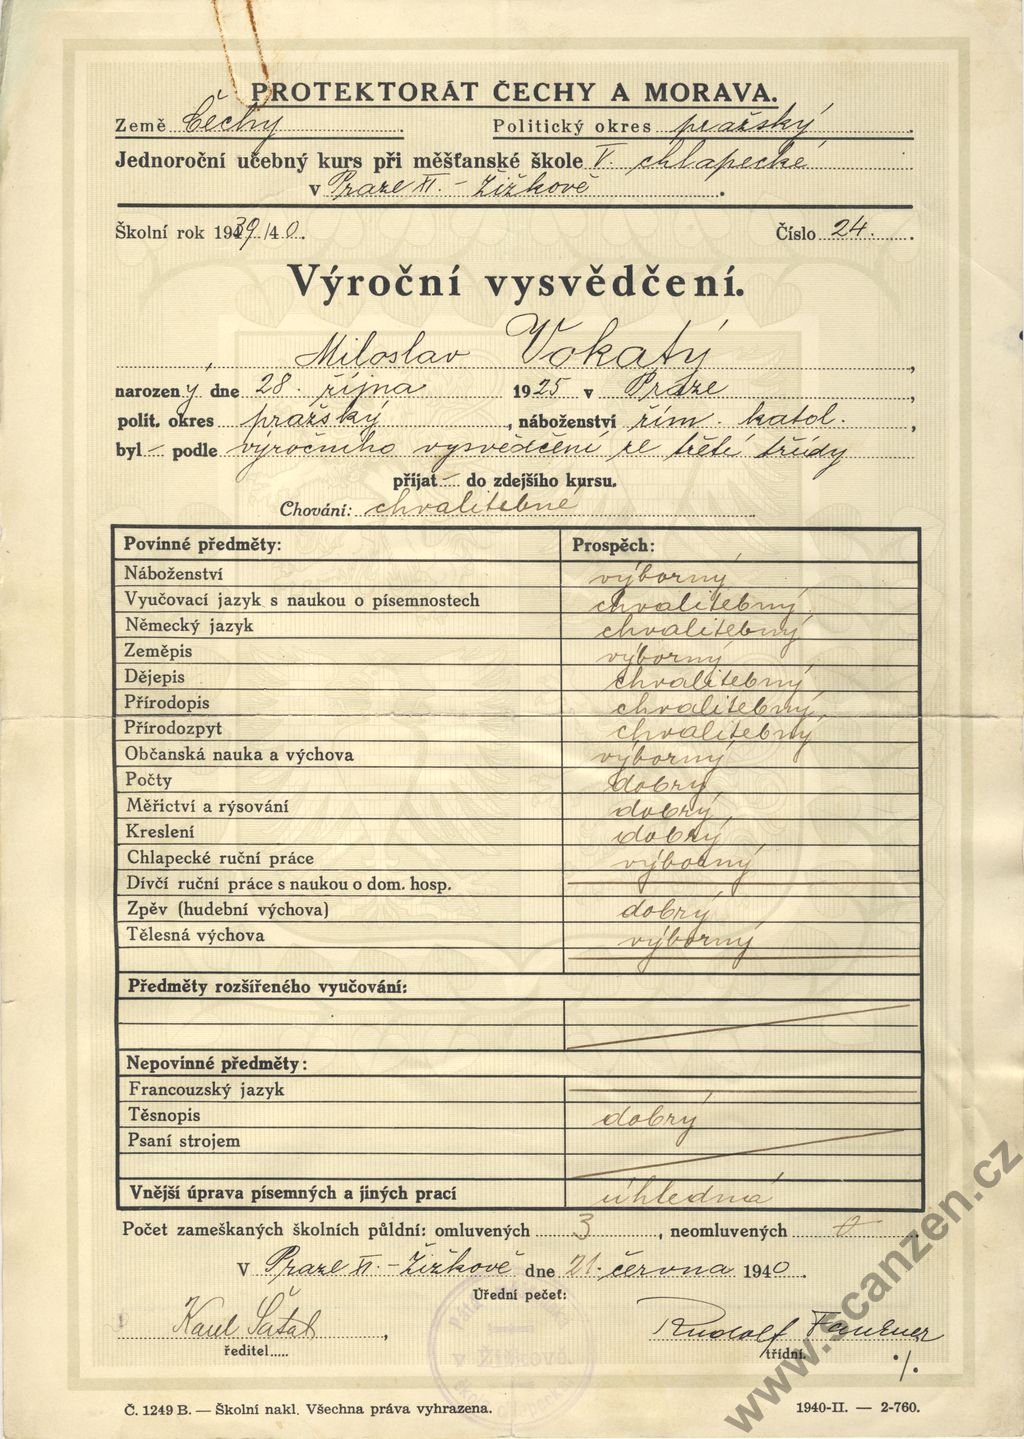 PROTEKTORÁT ČECHY A MORAVA.
Země Čechy Politický okres pražský
Jednoroční učebný kurs při měšťanské škole V. chlapecké
v Praze XI. - Žižkově .
Školní rok 1939/40. Číslo 24.
Výroční vysvědčení.
Miloslav Vokatý ,
narozený dne 28. října 1925 v Praze ,
polit. okres pražský , náboženství řím. katol. ,
byl – podle výročního vysvědčení ze třetí třídy
přijat – do zdejšího kursu.
Chování: chvalitebné
Povinné předměty: Prospěch:
Náboženství výborný
Vyučovací jazyk s naukou o písemnostech chvalitebný
Německý jazyk chvalitebný
Zeměpis výborný
Dějepis chvalitebný
Přírodopis chvalitebný
Přírodozpyt chvalitebný
Občanská nauka a výchova výborný
Počty dobrý
Měřictví a rýsování dobrý
Kreslení dobrý
Chlapecké ruční práce výborný
Dívčí ruční práce s naukou o dom. hosp.
Zpěv (hudební výchova) dobrý
Tělesná výchova výborný
Předměty rozšířeného vyučování:
Nepovinné předměty:
Francouzský jazyk
Těsnopis dobrý
Psaní strojem
Vnější úprava písemných a jiných prací úhledná
Počet zameškaných školních půldní: omluvených 3 , neomluvených
V Praze XI. - Žižkově dne 21. června 1940.
Úřední pečeť:
v Žižkově.
Rudolf
ředitel..... třídní.
Č. 1249 B. — Školní nakl. Všechna práva vyhrazena. 1940-II. — 2-760.
www.scanzen.cz